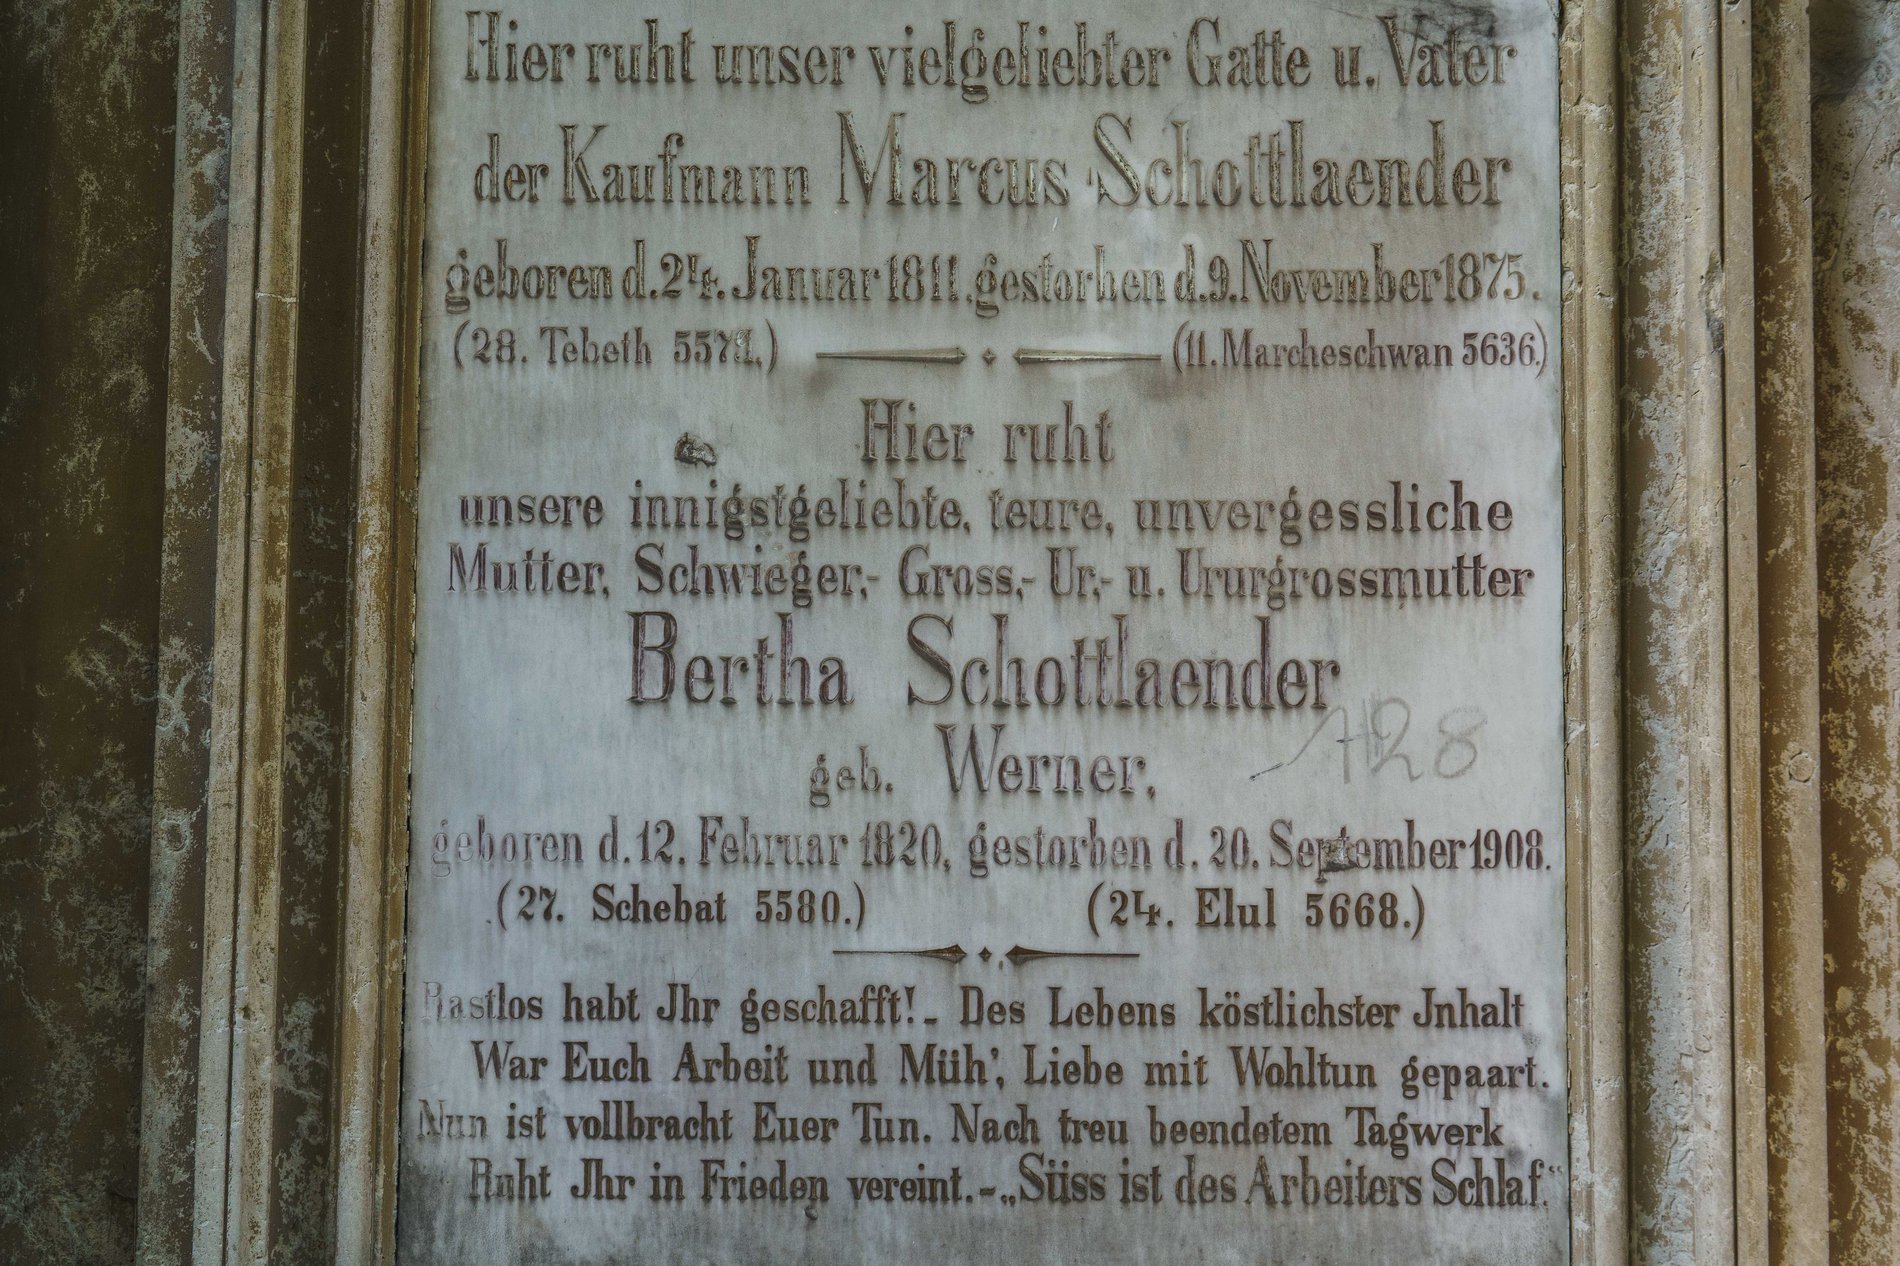 Hier ruht unser vielgeliebter Gatte u. Vater
der Kaufmann Marcus Schottlaender
geboren d. 24. Januar 1811, gestorben d. 9. November 1875.
(28. Tebeth 5571.) (11. Marcheschwan 5636.)
Hier ruht
unsere innigstgeliebte, teure, unvergessliche
Mutter, Schwieger,- Gross,- Ur,- u. Ururgrossmutter
Bertha Schottlaender
128
geb. Werner,
geboren d. 12. Februar 1820, gestorben d. 20. September 1908.
(27. Schebat 5580.) (24. Elul 5668.)
Rastlos habt Jhr geschafft!- Des Lebens köstlichster Jnhalt
War Euch Arbeit und Müh', Liebe mit Wohltun gepaart.
Nun ist vollbracht Euer Tun. Nach treu beendetem Tagwerk
Ruht Jhr in Frieden vereint.-„Süss ist des Arbeiters Schlaf.“